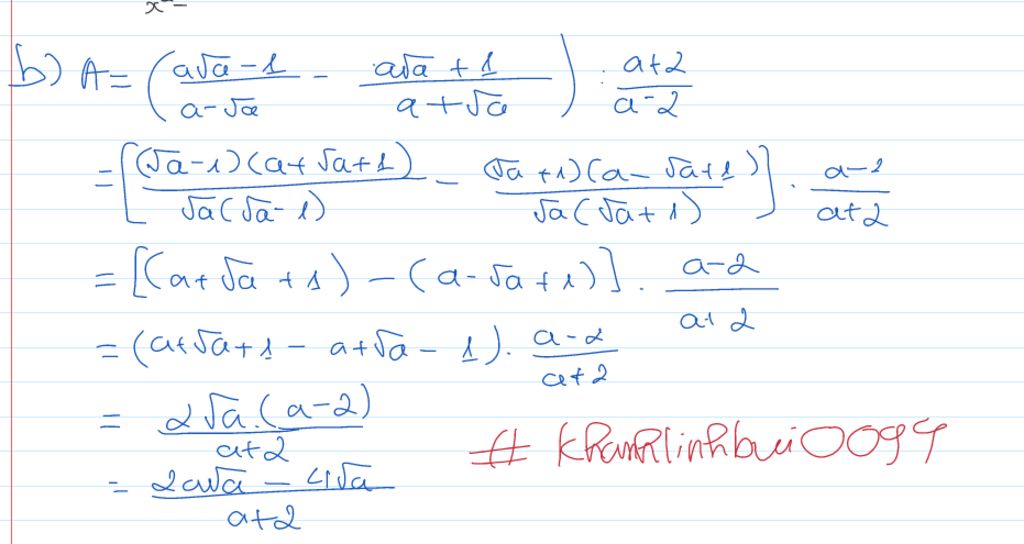 x
b) A = ( (a√a - 1)/(a - √a) - (a√a + 1)/(a + √a) ) : (a+2)/(a-2)
= [ (√a - 1)(a + √a + 1)/(√a(√a - 1)) - (√a + 1)(a - √a + 1)/(√a(√a + 1)) ] . (a-2)/(a+2)
= [(a + √a + 1) - (a - √a + 1)] . (a-2)/(a+2)
= (a + √a + 1 - a + √a - 1) . (a-2)/(a+2)
= 2√a.(a-2)/(a+2)
# Khanhlinhbui0094
= (2a√a - 4√a)/(a+2)